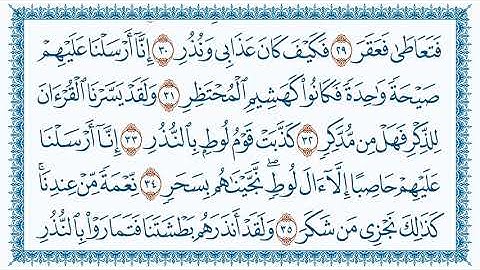 فَتَعَاطَىٰ فَعَقَرَ ٢٩ فَكَيْفَ كَانَ عَذَابِى وَنُذُرِ ٣٠ إِنَّآ أَرْسَلْنَا عَلَيْهِمْ
صَيْحَةً وَٰحِدَةً فَكَانُوا۟ كَهَشِيمِ ٱلْمُحْتَظِرِ ٣١ وَلَقَدْ يَسَّرْنَا ٱلْقُرْءَانَ
لِلذِّكْرِ فَهَلْ مِن مُّدَّكِرٍ ٣٢ كَذَّبَتْ قَوْمُ لُوطٍۭ بِٱلنُّذُرِ ٣٣ إِنَّآ أَرْسَلْنَا
عَلَيْهِمْ حَاصِبًا إِلَّآ ءَالَ لُوطٍ ۖ نَّجَّيْنَٰهُم بِسَحَرٍ ٣٤ نِّعْمَةً مِّنْ عِندِنَا ۚ
كَذَٰلِكَ نَجْزِى مَن شَكَرَ ٣٥ وَلَقَدْ أَنذَرَهُم بَطْشَتَنَا فَتَمَارَوْا۟ بِٱلنُّذُرِ